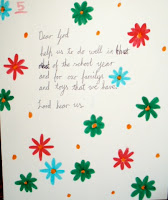 5
Dear God
help us to do well in
of the school year
and for our familys
and toys that we have
Lord hear us